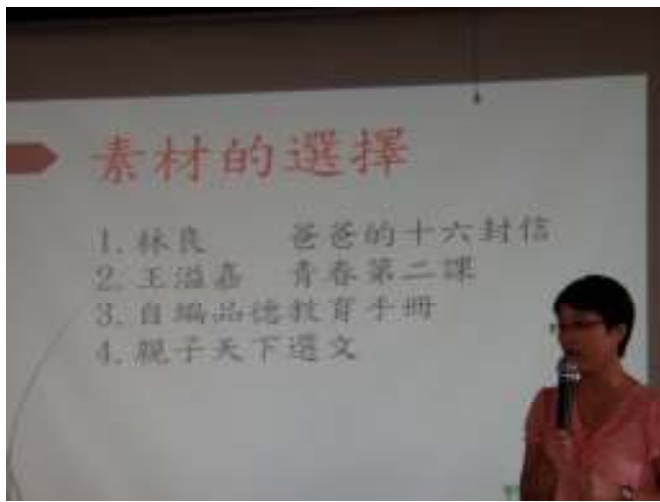 素材的選擇
1. 林良 爸爸的十六封信
2. 王溢嘉 青春第二課
3. 自編品德教育手冊
4. 親子天下選文